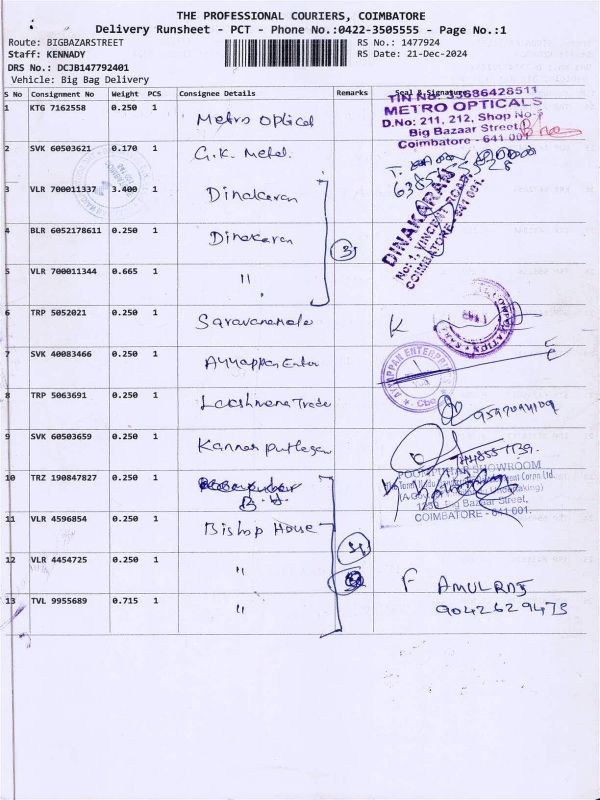 THE PROFESSIONAL COURIERS, COIMBATORE
Delivery Runsheet - PCT - Phone No.:0422-3505555 - Page No.:1
Route: BIGBAZARSTREET
Staff: KENNADY
DRS No.: DCJB147792401
Vehicle: Big Bag Delivery
RS No.: 1477924
RS Date: 21-Dec-2024
S No Consignment No Weight PCS Consignee Details Remarks Seal & Signature
1 KTG 7162558 0.250 1 Metro Optical
TIN No: 33686428511
METRO OPTICALS
D.No: 211, 212, Shop No-
Big Bazaar Street,
Coimbatore - 641 001
2 SVK 60503621 0.170 1 G.K. Metal.
3 VLR 700011337 3.400 1 Dinakaran
4 BLR 6052178611 0.250 1 Dinakaran
3
DINAKARAN
No: 1, VINCENT ROAD,
COIMBATORE - 641 001.
5 VLR 700011344 0.665 1 "
6 TRP 5052021 0.250 1
7 SVK 40083466 0.250 1 Ayyappan Enter
AYYAPPAN ENTERPRISES
8 TRP 5063691 0.250 1 Lakshmana Trade
9 SVK 60503659 0.250 1
10 TRZ 190847827 0.250 1
POOMPUHAR SHOWROOM
Big Bazaar Street,
COIMBATORE - 641 001.
11 VLR 4596854 0.250 1 Bishop House
12 VLR 4454725 0.250 1 "
13 TVL 9955689 0.715 1 "
AMULRAJ
9042629473